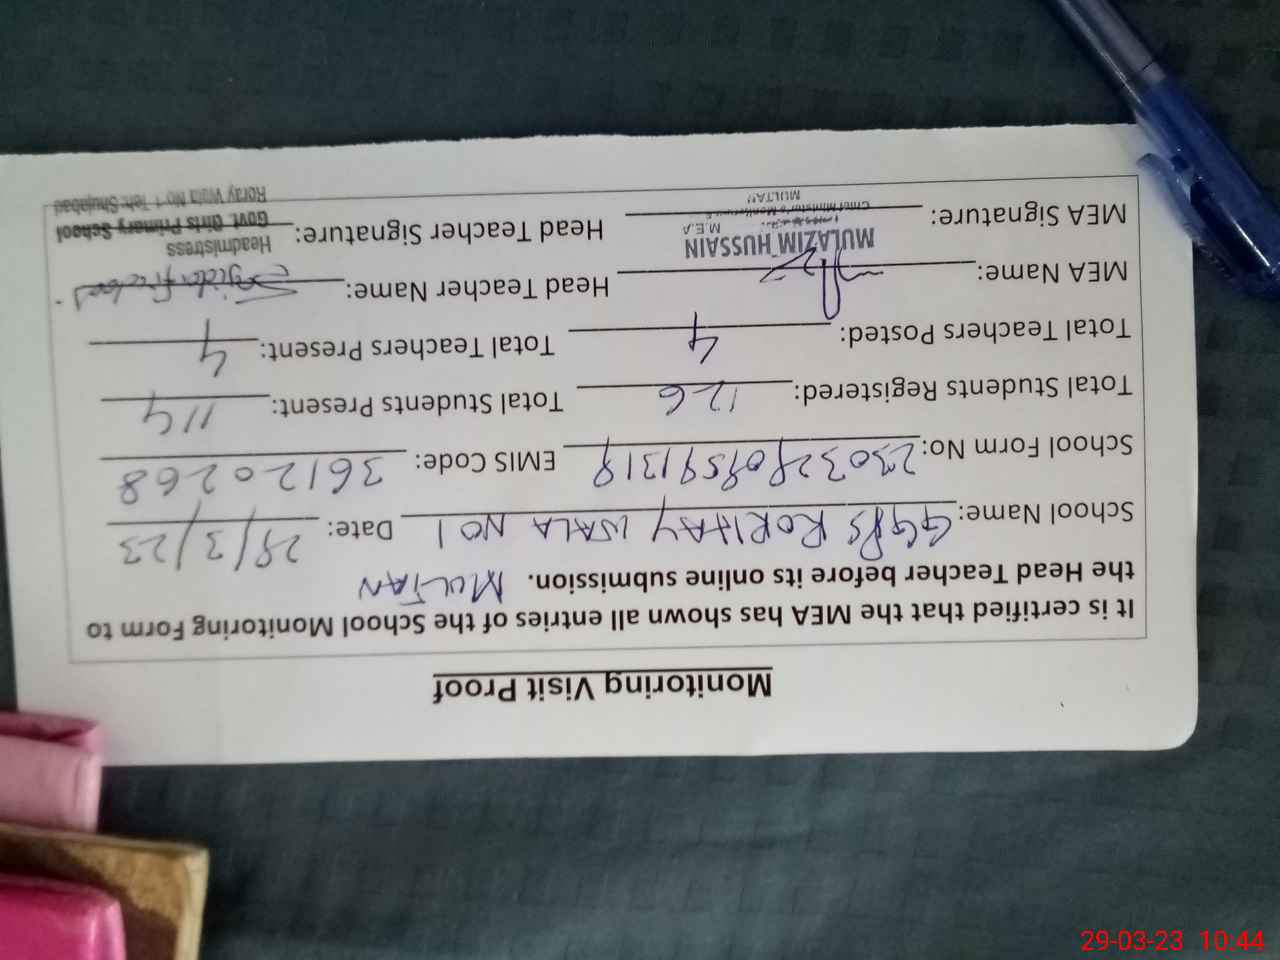 Monitoring Visit Proof
It is certified that the MEA has shown all entries of the School Monitoring Form to
the Head Teacher before its online submission. MULTAN
School Name: GGPS RORHAY WALA NO 1 Date: 29/3/23
School Form No: EMIS Code: 36120268
Total Students Registered: 126 Total Students Present: 114
Total Teachers Posted: 4 Total Teachers Present: 4
MEA Name: Head Teacher Name:
MULAZIM HUSSAIN Headmistress
M.E.A
MEA Signature: Head Teacher Signature: Govt. Girls Primary School
MULTAN Roray Wala No 1 Teh: Shujabad
29-03-23 10:44